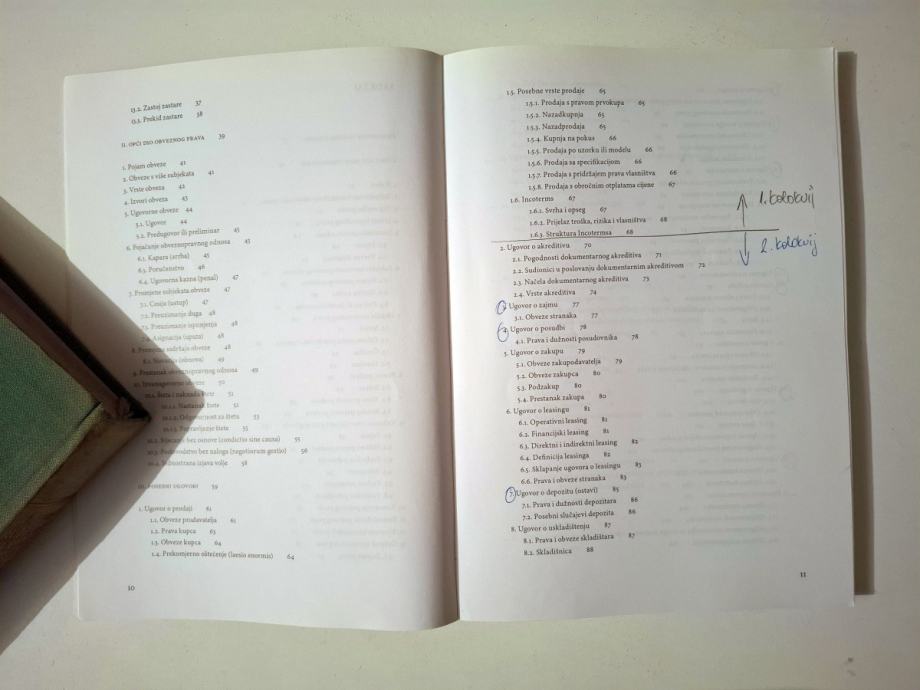 13.2. Zastoj zastare 37
13.3. Prekid zastare 38
II. OPĆI DIO OBVEZNOG PRAVA 39
1. Pojam obveze 41
2. Obveze s više subjekata 41
3. Vrste obveza 42
4. Izvori obveza 43
5. Ugovorne obveze 44
5.1. Ugovor 44
5.2. Predugovor ili preliminar 45
6. Pojačanje obveznopravnog odnosa 45
6.1. Kapara (arrha) 45
6.3. Poručanstvo 46
6.4. Ugovorna kazna (penal) 47
7. Promjene subjekata obveze 47
7.1. Cesija (ustup) 47
7.2. Preuzimanje duga 48
7.3. Preuzimanje ispunjenja 48
7.4. Asignacija (uputa) 48
8. Promjene sadržaja obveze 48
8.1. Novacija (obnova) 49
9. Prestanak obveznopravnog odnosa 49
10. Izvanugovorne obveze 50
10.1. Šteta i naknada štete 51
10.1.1. Nastanak štete 51
10.1.2. Odgovornost za štetu 53
10.1.3. Popravljanje štete 55
10.2. Stjecanje bez osnove (condictio sine causa) 55
10.3. Poslovodstvo bez naloga (negotiorum gestio) 56
10.4. Jednostrana izjava volje 58
III. POSEBNI UGOVORI 59
1. Ugovor o prodaji 61
1.1. Obveze prodavatelja 61
1.2. Prava kupca 63
1.3. Obveze kupca 64
1.4. Prekomjerno oštećenje (laesio enormis) 64
10
1.5. Posebne vrste prodaje 65
1.5.1. Prodaja s pravom prvokupa 65
1.5.2. Nazadkupnja 65
1.5.3. Nazadprodaja 65
1.5.4. Kupnja na pokus 66
1.5.5. Prodaja po uzorku ili modelu 66
1.5.6. Prodaja sa specifikacijom 66
1.5.7. Prodaja s pridržajem prava vlasništva 66
1.5.8. Prodaja s obročnim otplatama cijene 67
1.6. Incoterms 67
1.6.1. Svrha i opseg 67
1.6.2. Prijelaz troška, rizika i vlasništva 68
1.6.3. Struktura Incotermsa 68
1. kolokvij
2. kolokvij
2. Ugovor o akreditivu 70
2.1. Pogodnosti dokumentarnog akreditiva 71
2.2. Sudionici u poslovanju dokumentarnim akreditivom 72
2.3. Načela dokumentarnog akreditiva 73
2.4. Vrste akreditiva 74
Ugovor o zajmu 77
3.1. Obveze stranaka 77
4. Ugovor o posudbi 78
4.1. Prava i dužnosti posudovnika 78
5. Ugovor o zakupu 79
5.1. Obveze zakupodavatelja 79
5.2. Obveze zakupca 80
5.3. Podzakup 80
5.4. Prestanak zakupa 80
6. Ugovor o leasingu 81
6.1. Operativni leasing 81
6.2. Financijski leasing 81
6.3. Direktni i indirektni leasing 82
6.4. Definicija leasinga 82
6.5. Sklapanje ugovora o leasingu 83
6.6. Prava i obveze stranaka 83
7. Ugovor o depozitu (ostavi) 85
7.1. Prava i dužnosti depozitara 86
7.2. Posebni slučajevi depozita 86
8. Ugovor o uskladištenju 87
8.1. Prava i obveze skladištara 87
8.2. Skladišnica 88
11